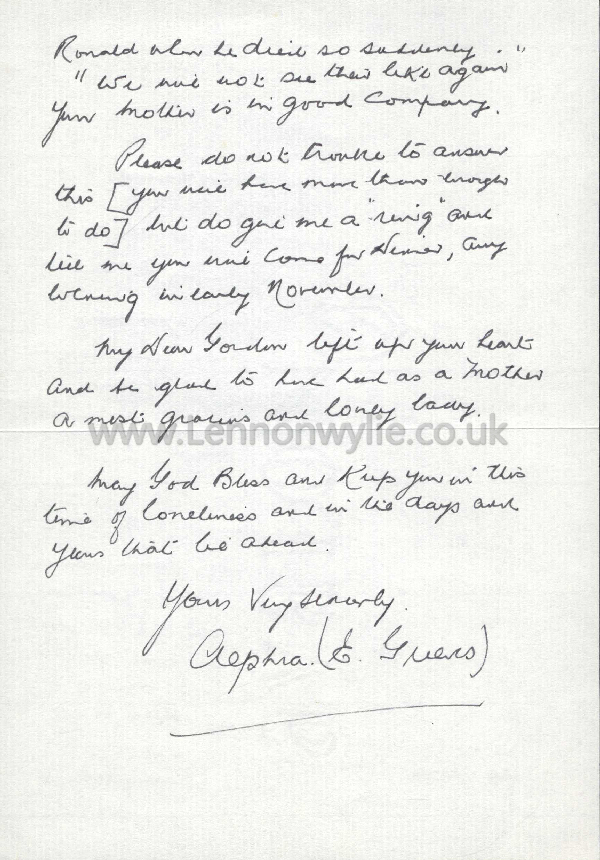 Ronald when he died so suddenly."
"We will not see their like again
Your Mother is in good Company.
Please do not trouble to answer
this [you will have more than enough
to do] but do give me a "ring" and
tell me you will come for Dinner, any
evening in early November.
My Dear Gordon lift up your heart
and be glad to have had as a Mother
a most gracious and lovely lady.
www.Lennonwylie.co.uk
May God Bless and Keep you in this
time of loneliness and in the days and
years that lie ahead.
Yours Very Sincerely.
(E.